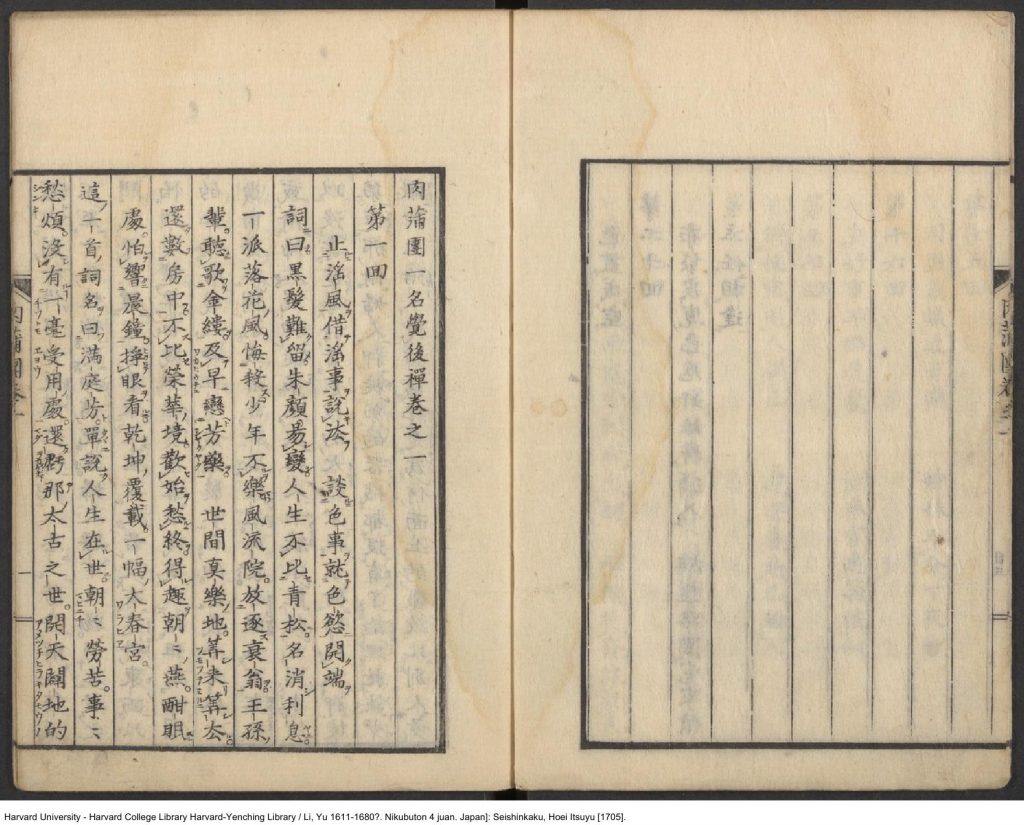 肉蒲團一名覺後禪卷之一
第一回
止淫風借淫事說法 談色事就色慾開端
詞曰黒髮難留朱顏易變人生不比青松名消利息
一派落花風悔殺少年不樂風流院放逐衰翁王孫
輩聽歌金縷及早戀芳樂世間真樂地筭来筭去
還數房中不比榮華境歡始愁終得趣朝〻燕酣眠
處怕響晨鐘掙眼看乾坤覆載一幅大春宮
這一首詞名曰滿庭芳單說人生在世朝〻勞苦事〻
愁煩沒有一毫受用處還虧那太古之世開天闢地的
Harvard University - Harvard College Library Harvard-Yenching Library / Li, Yu 1611-1680?. Nikubuton 4 juan. Japan]: Seishinkaku, Hoei Itsuyu [1705].